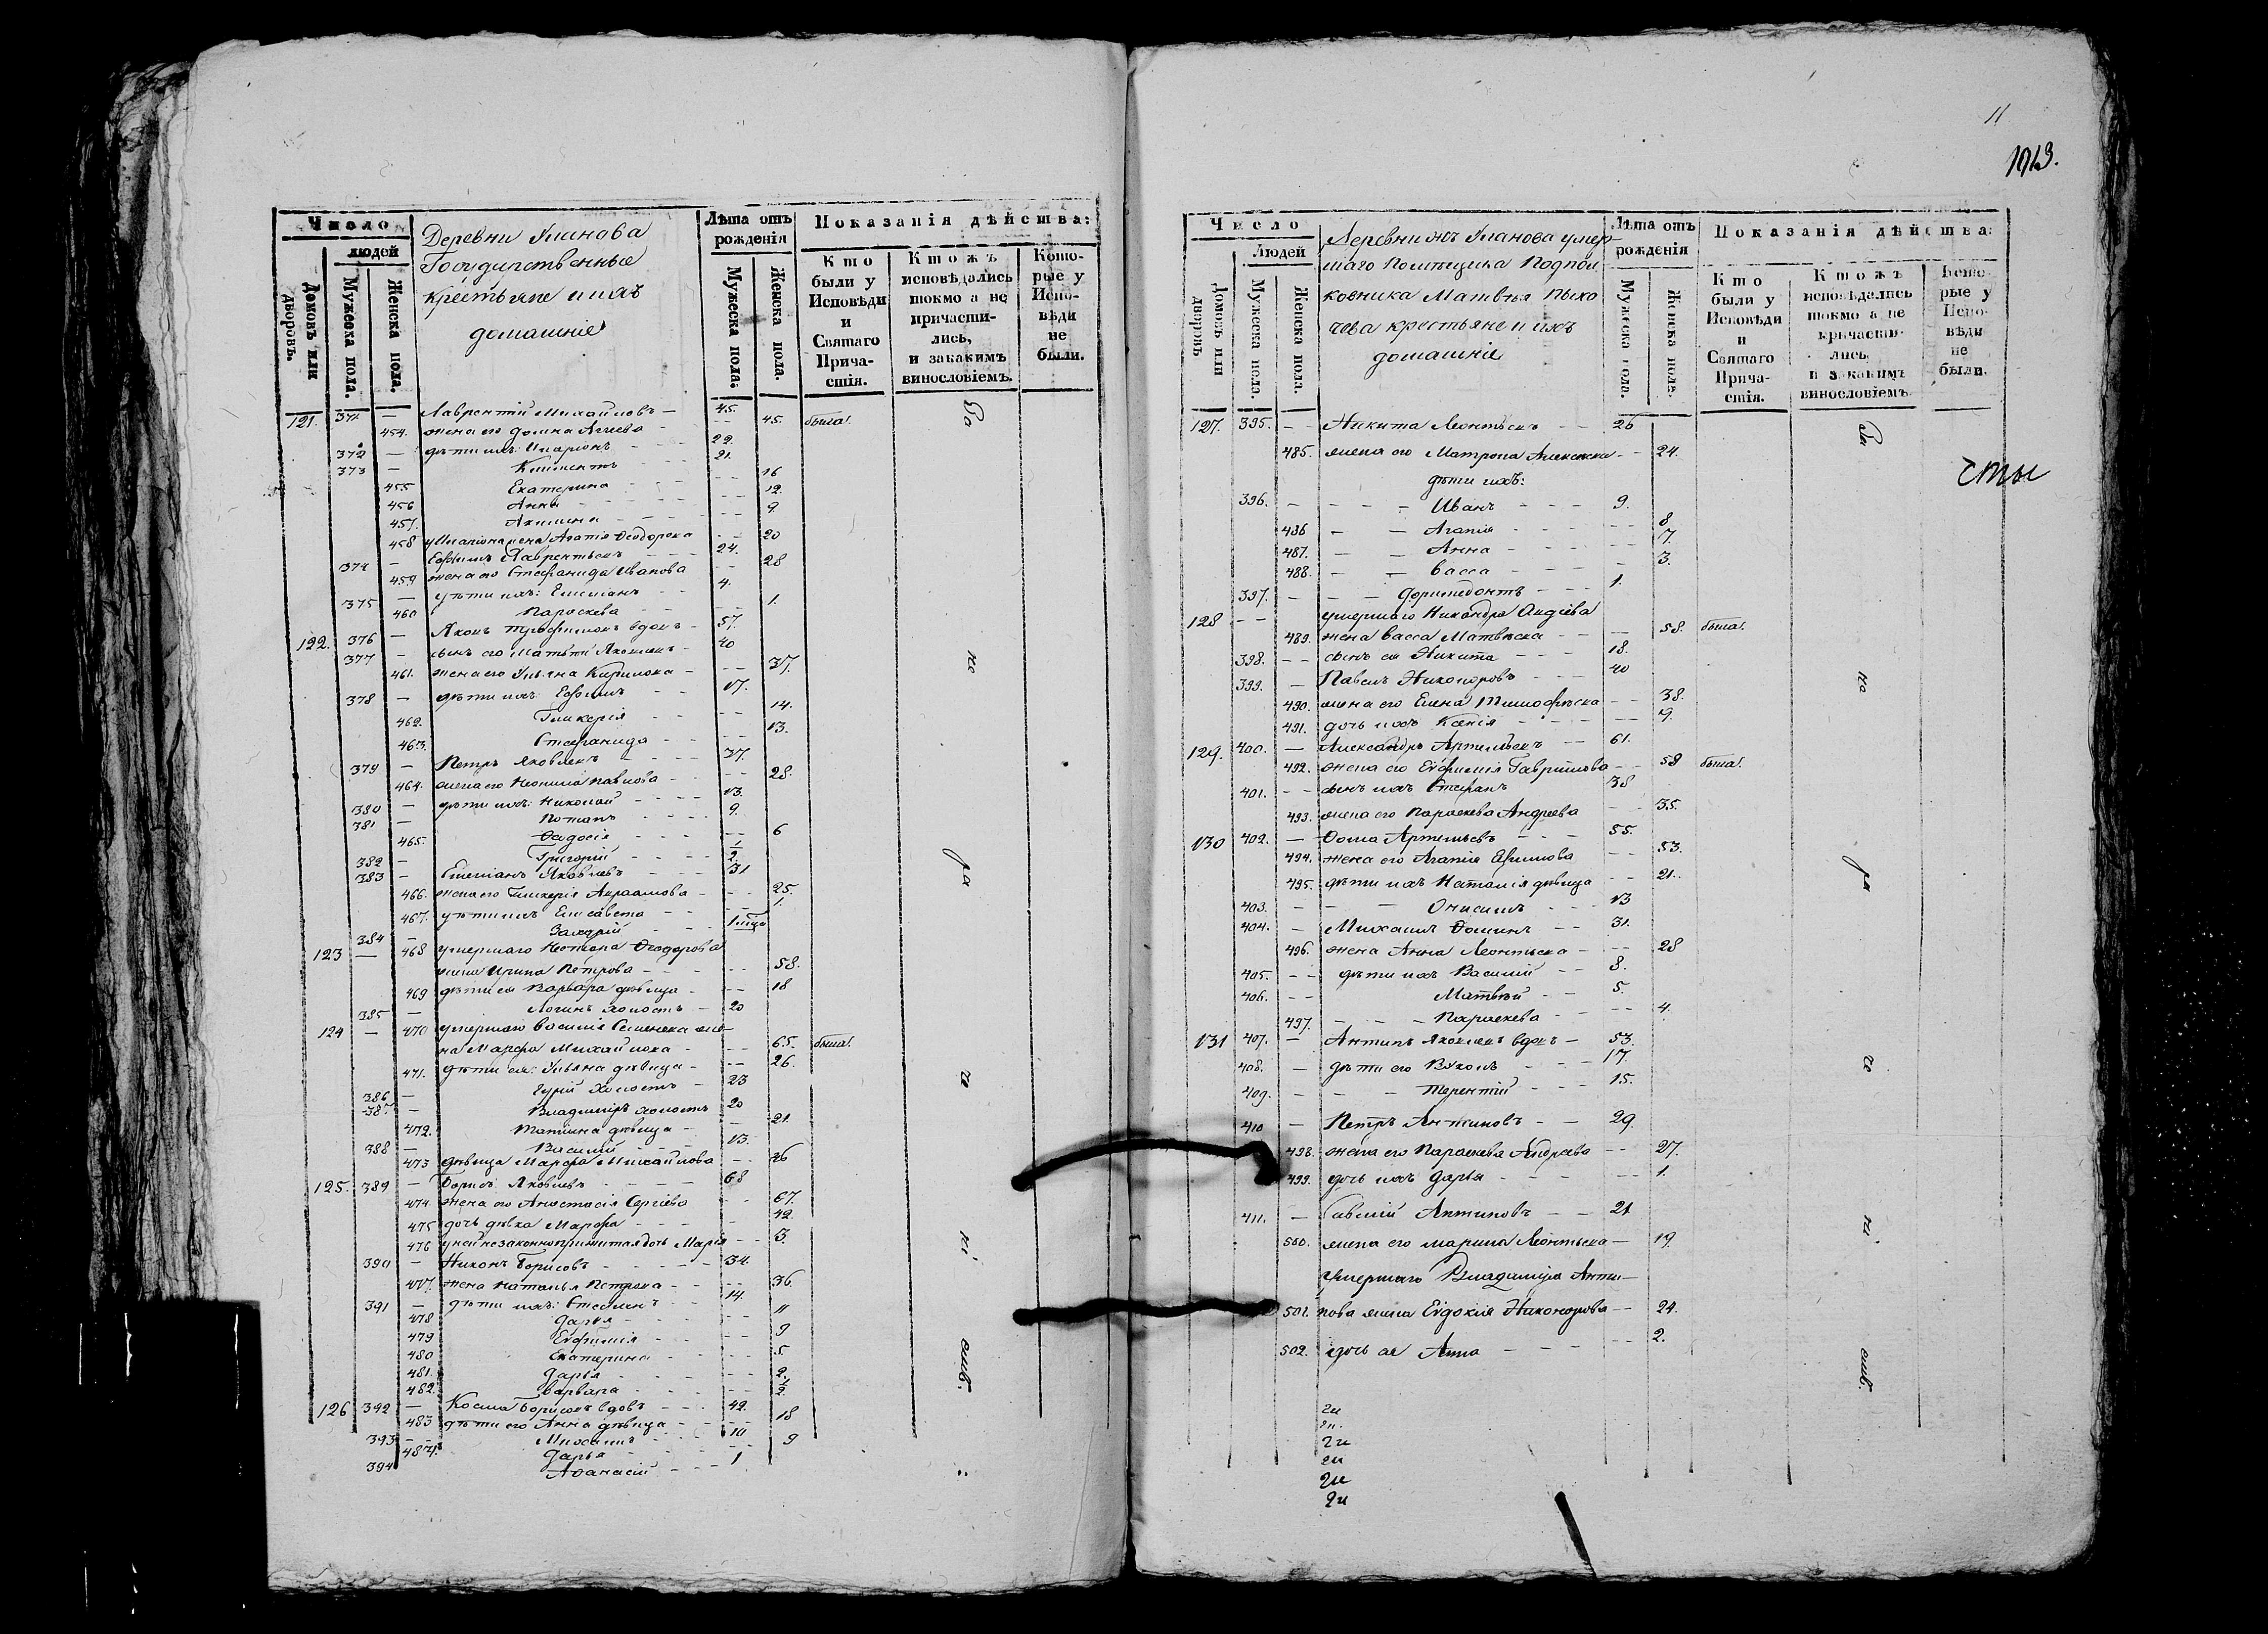 Число
людей
Домовъ или дворовъ.
Мужеска пола.
Женска пола.
Деревни Уланова
Государственные
крестьяне и ихъ
домашніе
Лѣта отъ рожденія
Мужеска пола.
Женска пола.
Показанія дѣйства:
Кто были у Исповѣди и Святаго Причастія.
Ктожъ исповѣдались токмо а не причастились, и закакимъ винословіемъ.
Которые у Исповѣди не были.
121. 371 — Лаврентій Михайловъ — 45.
454. жена его Домна Агѣева — 45. была.
372 — дѣти ихъ: Иларіонъ 22.
373 — Климентъ 21.
455 Екатерина 16
456 Анна 12.
457. Акилина 9.
458 у Иларіона жена Агапія Ѳеодорова 20
374 — Ефимъ Лаврентьевъ 24.
459 жена его Стефанида Иванова 28
375 — дѣти ихъ: Емеліанъ 4.
460 Параскева 1.
122. 376 — Яковъ Трофимовъ вдовъ 57.
377 — сынъ его Матвѣй Яковлевъ 40
461. жена его Ульяна Кирилова 37.
378 — дѣти ихъ: Ефимъ 17.
462. Гликерія 14.
463. Стефанида 13.
379 — Петръ Яковлевъ 37.
464. жена его Неонила Павлова 28.
380 — дѣти ихъ: Николай 13.
381 — Потапъ 9.
465. Ѳедосія 6
382 — Григорій 1/2
383 — Емеліанъ Яковлевъ 31
466. жена его Гликерія Авраамова 25.
467. дѣти ихъ Елисавета 1.
384 — Захарій
123 — 468 умершаго Нестора Ѳеодорова
жена Ирина Петрова 58.
469 дѣти ея Варвара дѣвица 18
385 — Логинъ холостъ 20
124 — 470 умершаго Василія Семенова же-
на Марфа Михайлова 65. была.
471. дѣти ея: Ульяна дѣвица 26.
386 — Гурій холостъ 23
387 — Владиміръ холостъ 20
472. Татіана дѣвица 21.
388 — Василій 13.
473 дѣвица Марфа Михайлова 26
125. 389 — Борисъ Яковлевъ 68
474 жена его Анастасія Сергѣева 67.
475 дочь дѣвка Марфа 42.
476 у ней незаконноприжитая дочь Марія 3.
390 — Никонъ Борисовъ 34.
477. жена Наталья Петрова 36.
391 — дѣти ихъ: Стефанъ 14.
478 Дарья 11
479 Евфимія 9
480 Екатерина 5.
481. Дарья 2.
482. Варвара 1/2.
126 392 — Косма Борисовъ вдовъ 42.
483 дѣти его Анна дѣвица 18
393 — Михаилъ 10
484. Дарья 9
394 Аѳанасій 1
Ра
не
ра
че
ні
емъ.
11
1013.
Число
Людей
Домовъ или дворовъ
Мужеска пола.
Женска пола.
Деревни жъ Уланова умер-
шаго Помѣщика Подпол
ковника Матвѣя Пыхо
чева крестьяне и ихъ
домашніе
Лѣта отъ рожденія
Мужеска пола.
Женска пола.
Показанія дѣйства:
Кто были у Исповѣди и Святаго Причастія.
Ктожъ исповѣдались токмо а не причастились, и закакимъ винословіемъ.
Которые у Исповѣди не были.
127. 395. — Никита Леонтьевъ 26
485. жена его Матрона Алексѣева 24.
дѣти ихъ:
396. Иванъ 9.
486 Агапія 8
487. Анна 7.
488. Васса 3.
397. Доримедонтъ 1.
128 умершаго Никандра Авдіева
489. жена Васса Матвѣева 58. была.
398. сынъ ея Никита 18.
399. — Павелъ Никоноровъ 40
490. жена его Елена Тимофѣева 38.
491. дочь ихъ Ксенія 9.
129. 400. — Александръ Артемьевъ 61.
492. жена его Евфимія Гаврійлова 58 была.
401. сынъ ихъ Стефанъ 38
493. жена его Параскева Андреева 35.
130 402. — Ѳома Артемьевъ 55.
494. жена его Агапія Ефимова 53.
495. дѣти ихъ Наталія дѣвица 21.
403. Онисимъ 13
404. — Михаилъ Ѳоминъ 31.
496. жена Анна Леонтьева 28
405. дѣти ихъ Василій 8.
406. Матвѣй 5.
497. Параскева 4.
131 407. — Антипъ Яковлевъ вдовъ — 53.
408. — дѣти его Вуколъ 17.
409. Терентій 15.
410 — Петръ Антиповъ 29.
498. жена его Параскева Андреева 27.
499. дочь ихъ Дарья 1.
411. — Савелій Антиповъ 21
500. жена его Марина Леонтьева — 19.
умершаго Владиміра Анти-
501. пова жена Евдокія Никонорова — 24.
502. дочь ея Анна 2.
Ра
не
ра
че
ні
емъ.
сты